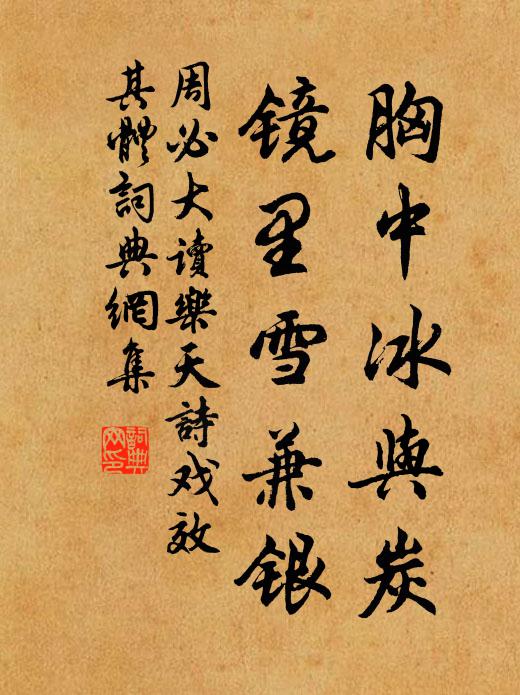 胸中冰與炭
镜里雪兼银
周必大读樂天詩戏效
其體詞典網集
詞典
网印